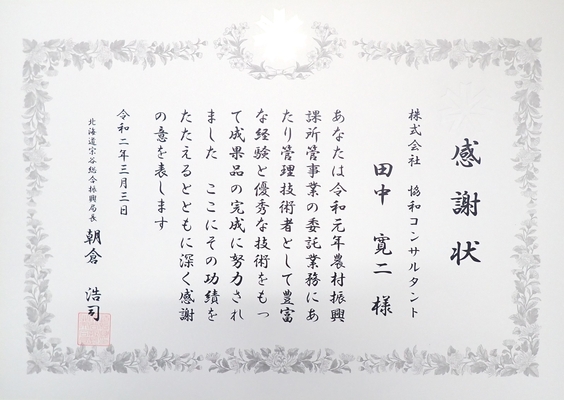 感謝状
株式会社 協和コンサルタント
田中 寛二 様
あなたは令和元年農村振興
課所管事業の委託業務にあ
たり管理技術者として豊富
な経験と優秀な技術をもっ
て成果品の完成に努力され
ました ここにその功績を
たたえるとともに深く感謝
の意を表します
令和二年三月三日
北海道宗谷総合振興局長 朝倉 浩司